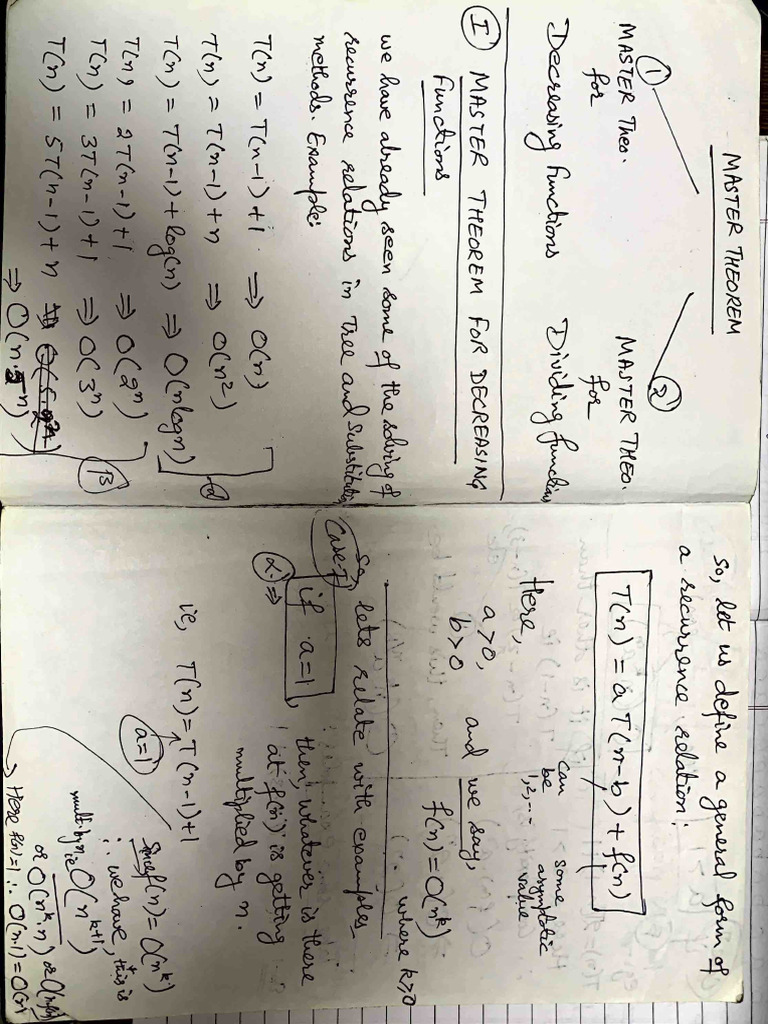 MASTER THEOREM
① ②
MASTER Theo. MASTER THEO.
for for
Decreasing functions Dividing functions
Ⓘ MASTER THEOREM FOR DECREASING
functions
we have already seen some of the solving of
recurrence relations in Tree and Substitution
methods. Example:
T(n) = T(n-1)+1 ⇒ O(n)
T(n) = T(n-1)+n ⇒ O(n²)
T(n) = T(n-1)+log(n) ⇒ O(nlogn)
T(n) = 2T(n-1)+1 ⇒ O(2ⁿ)
T(n) = 3T(n-1)+1 ⇒ O(3ⁿ)
T(n) = 5T(n-1)+n
⇒ O(n.5ⁿ)
So, let us define a general form of
a recurrence relation:
T(n) = aT(n-b) + f(n)
can be 1,2,... some asymptotic value
Here,
a>0,
b>0 and we say,
f(n) = O(nᵏ) where k≥0
So, lets relate with examples
Case-I
if a=1, then, whatever is there
at f(n) is getting
multiplied by n.
ie, T(n) = T(n-1)+1
a=1
Since f(n) = O(nᵏ)
∴ we have, this is
multi. by n ie O(nᵏ⁺¹)
or O(nᵏ.n) or
Here f(n)=1 ∴ O(n.1) = O(n)